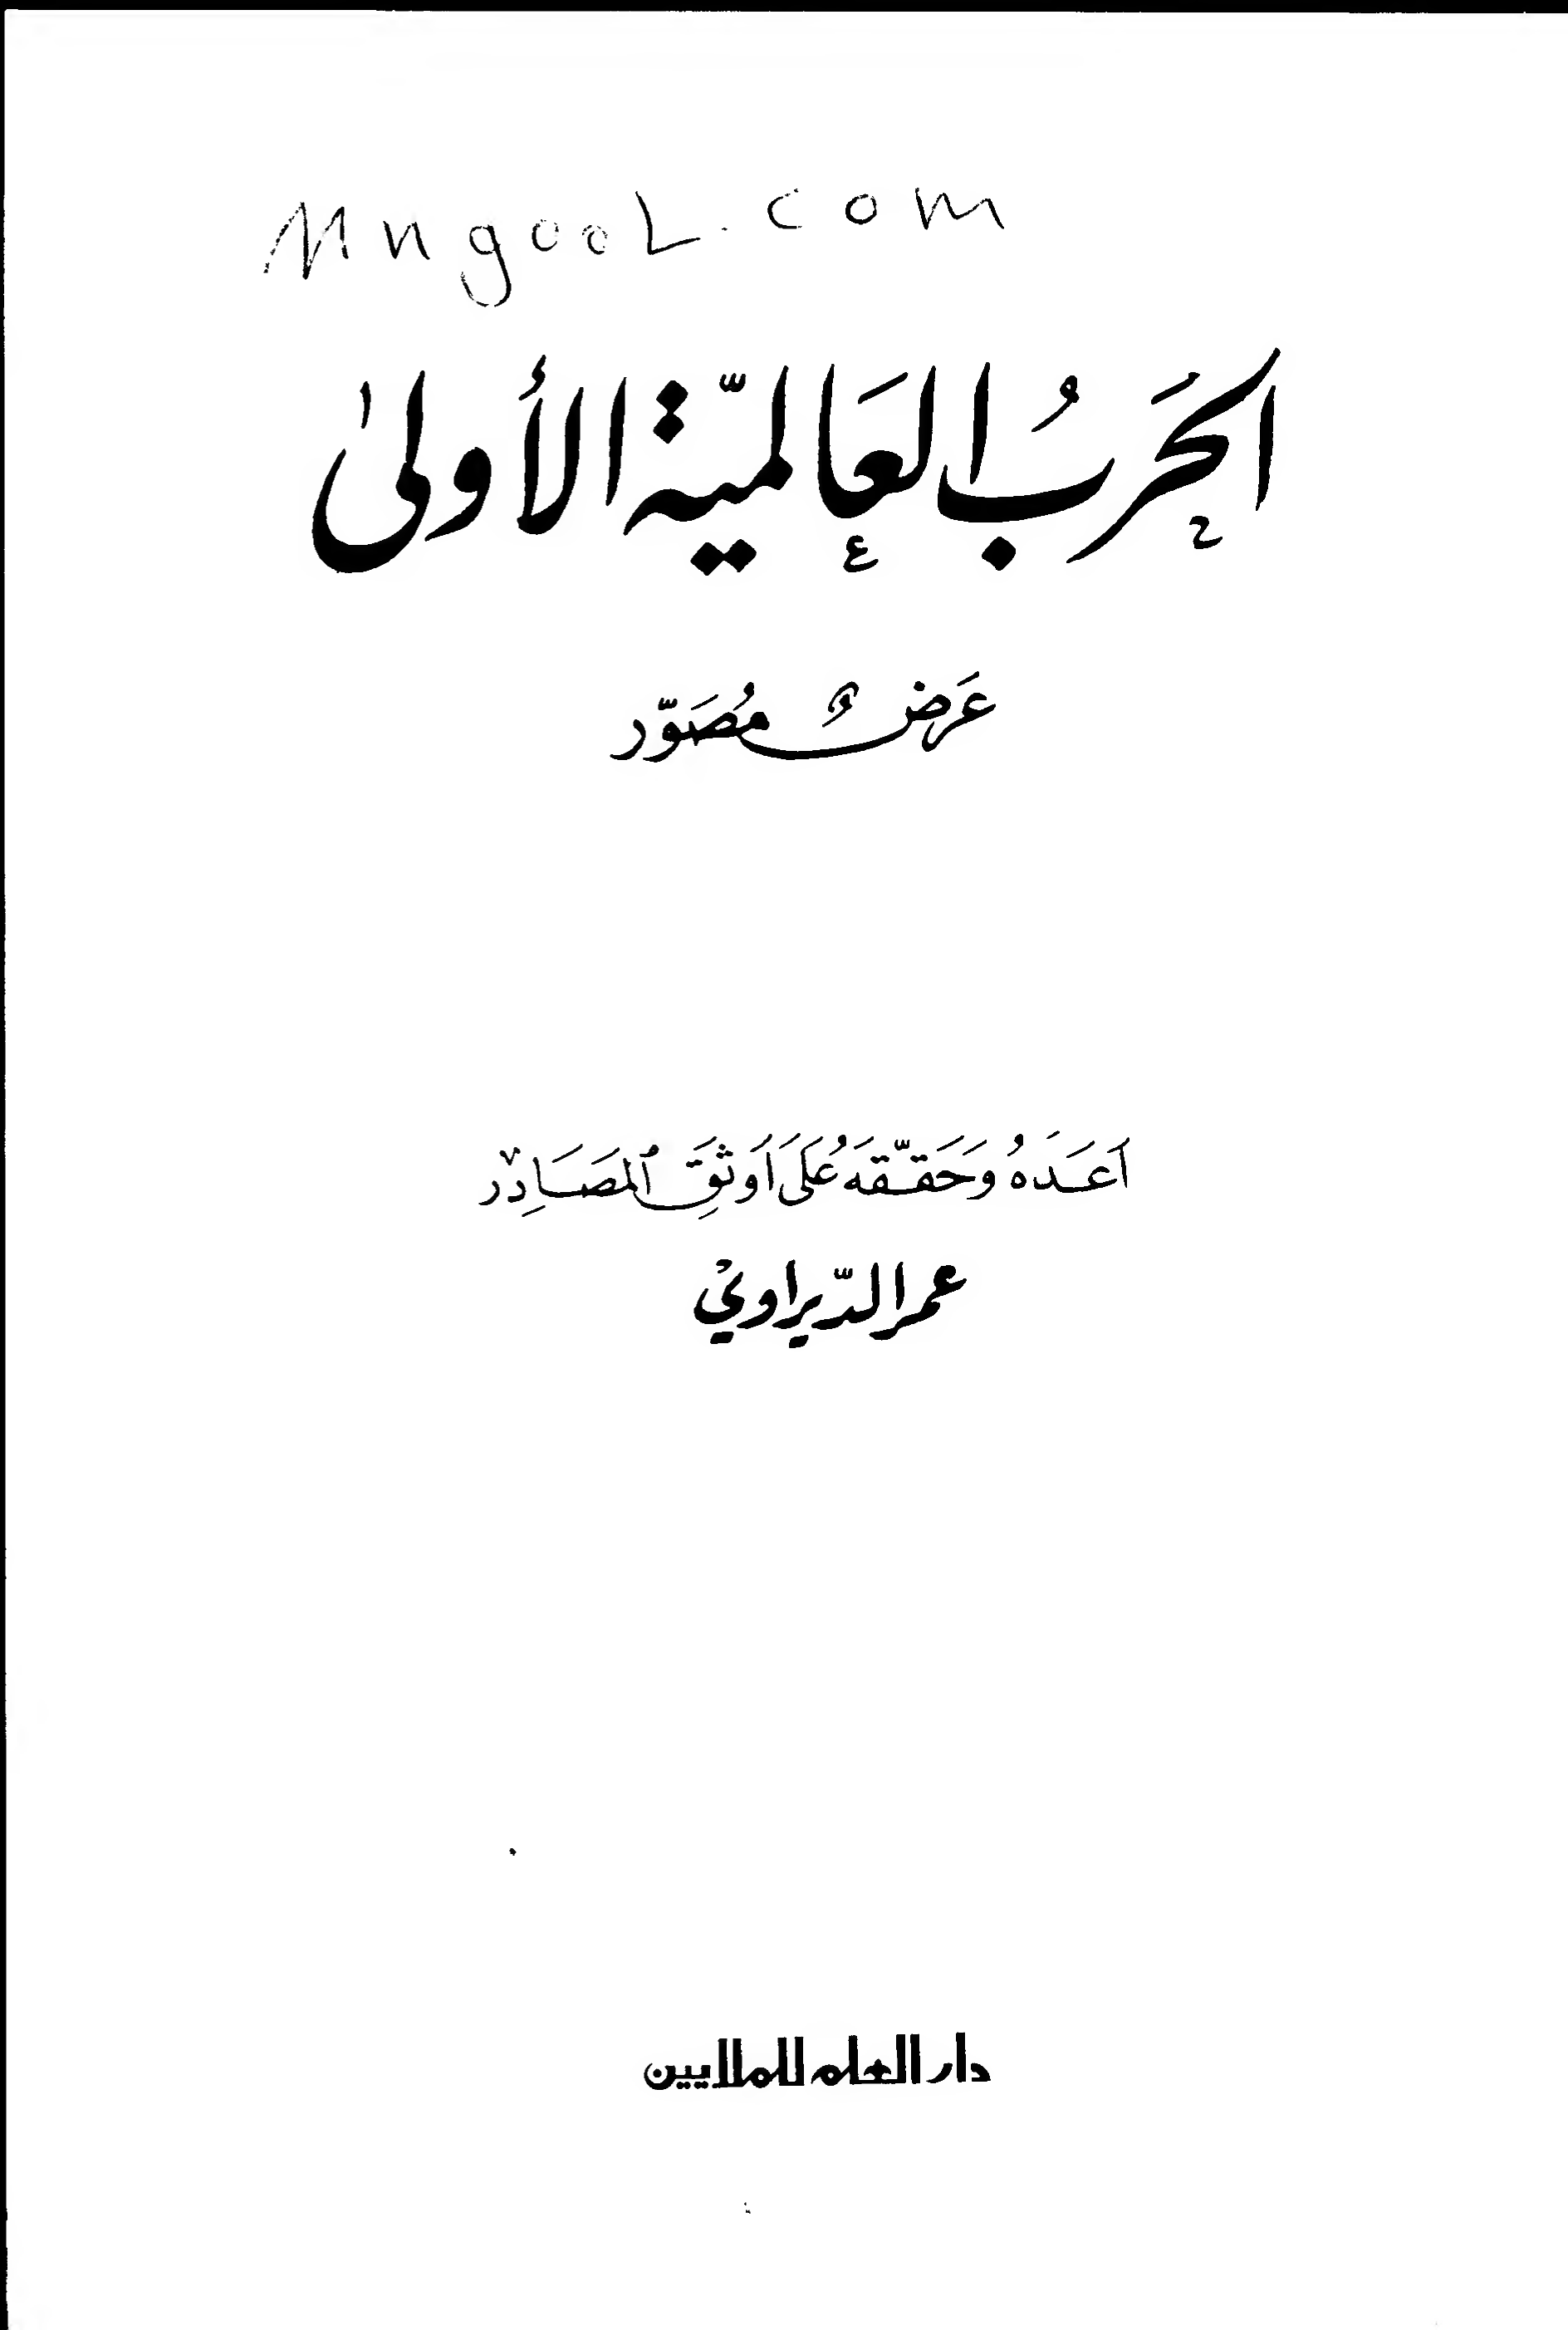 Mngool.com
الحَرْبُ العَالميّة الأولىٰ
عَرضٌ مُصَوّر
اَعَدَهُ وَحَقّقَهُ عَلَى اَوثَقِ المصَادِر
عمر الدّيراوي
دار العلم للملايين